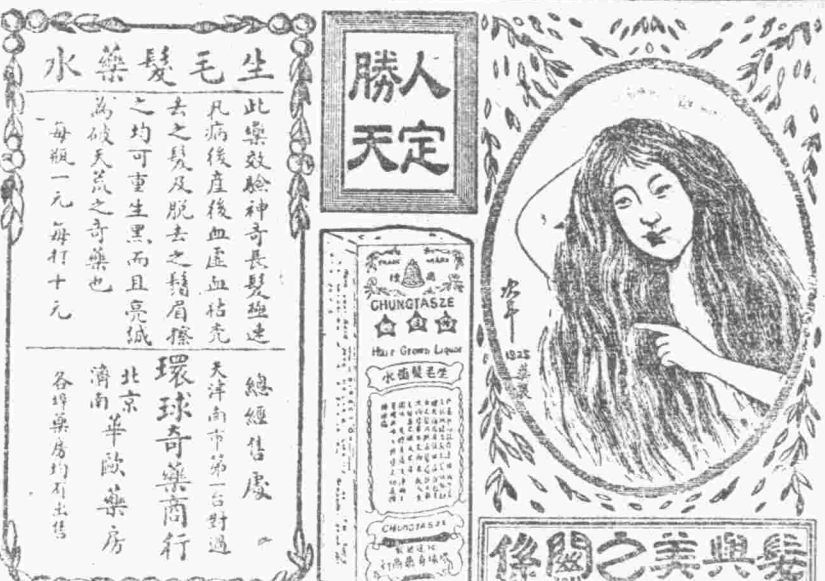 生毛髮藥水
此藥效驗神奇長髮極速
凡病後產後血虛血枯禿
去之髮及脫去之鬚眉擦
之均可重生黑而且亮誠
為破天荒之奇藥也
每瓶一元 每打十元
總經售處
天津南市第一台對過
環球奇藥商行
北京
濟南
華歐藥房
各埠藥房均有出售
人定
勝天
TRADE MARK
商標
CHUNGTASZE
Hair Grown Liquor
生毛髮藥水
CHUNGTASZE
1925
髮與美之關係